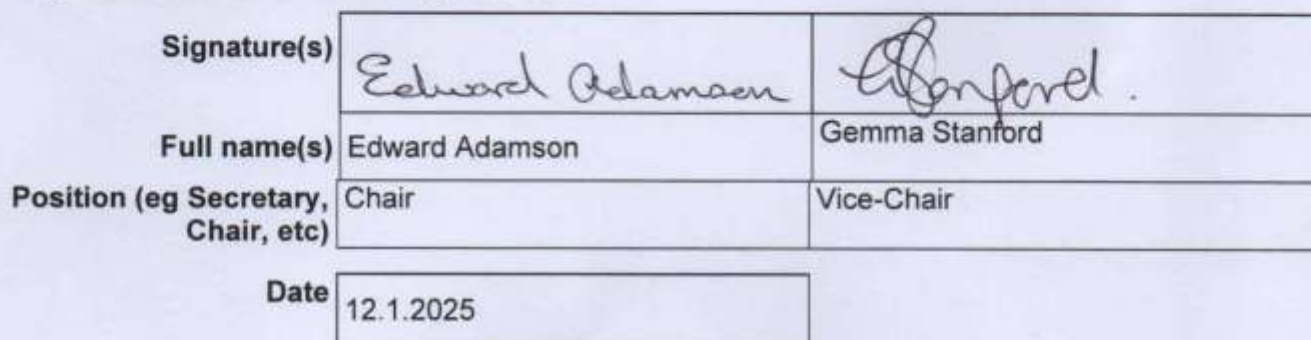 Signature(s)
Edward Adamson
GStanford.
Full name(s) Edward Adamson Gemma Stanford
Position (eg Secretary, Chair, etc) Chair Vice-Chair
Date 12.1.2025